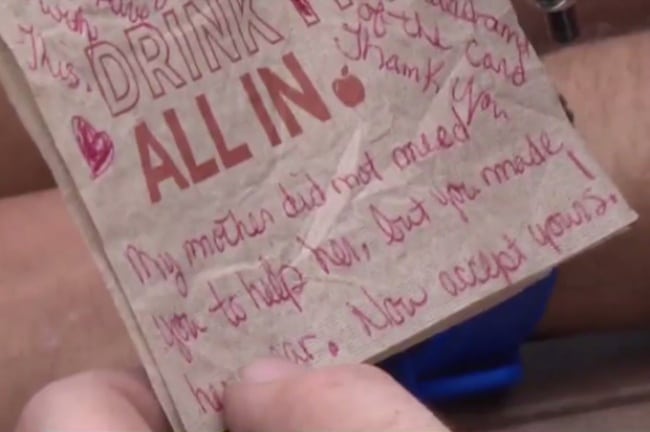 with
This.
DRINK
ALL IN
of the card
Thank you
My mother did not need
you to help her, but you made
Now accept yours.